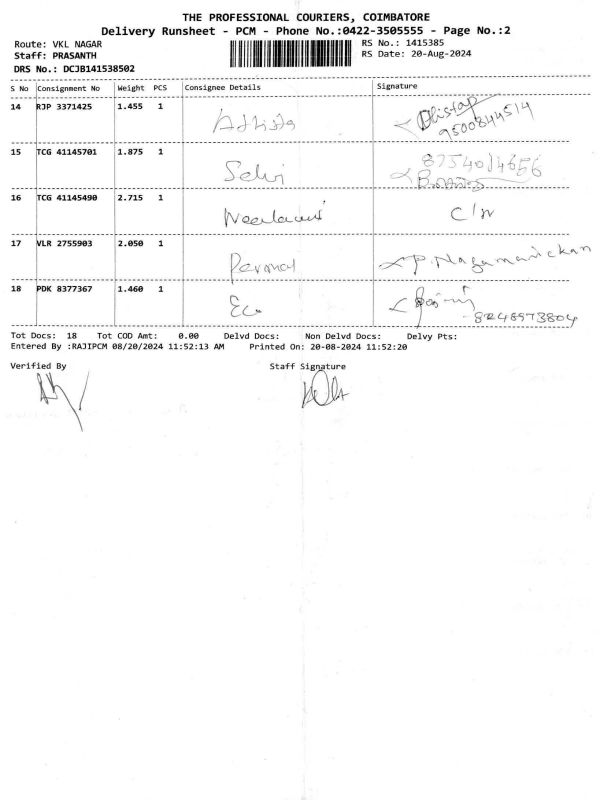 THE PROFESSIONAL COURIERS, COIMBATORE
Delivery Runsheet - PCM - Phone No.:0422-3505555 - Page No.:2
Route: VKL NAGAR RS No.: 1415385
Staff: PRASANTH RS Date: 20-Aug-2024
DRS No.: DCJB141538502
S No Consignment No Weight PCS Consignee Details Signature
14 RJP 3371425 1.455 1
9500844514
15 TCG 41145701 1.875 1 Selvi
16 TCG 41145490 2.715 1 C/n
17 VLR 2755903 2.050 1 Permal P. Nagamanickan
18 PDK 8377367 1.460 1
8248973804
Tot Docs: 18 Tot COD Amt: 0.00 Delvd Docs: Non Delvd Docs: Delvy Pts:
Entered By :RAJIPCM 08/20/2024 11:52:13 AM Printed On: 20-08-2024 11:52:20
Verified By Staff Signature